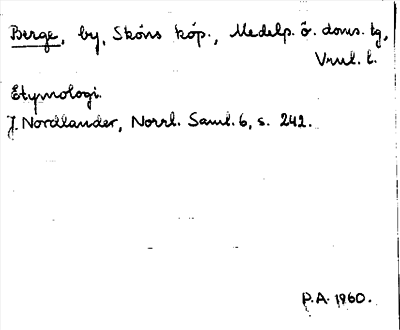 Berge, by, Sköns köp., Medelp. ö. doms. tg,
Vnrl. l.
Etymologi.
J. Nordlander, Norrl. Saml. 6, s. 242.
P.A. 1960.